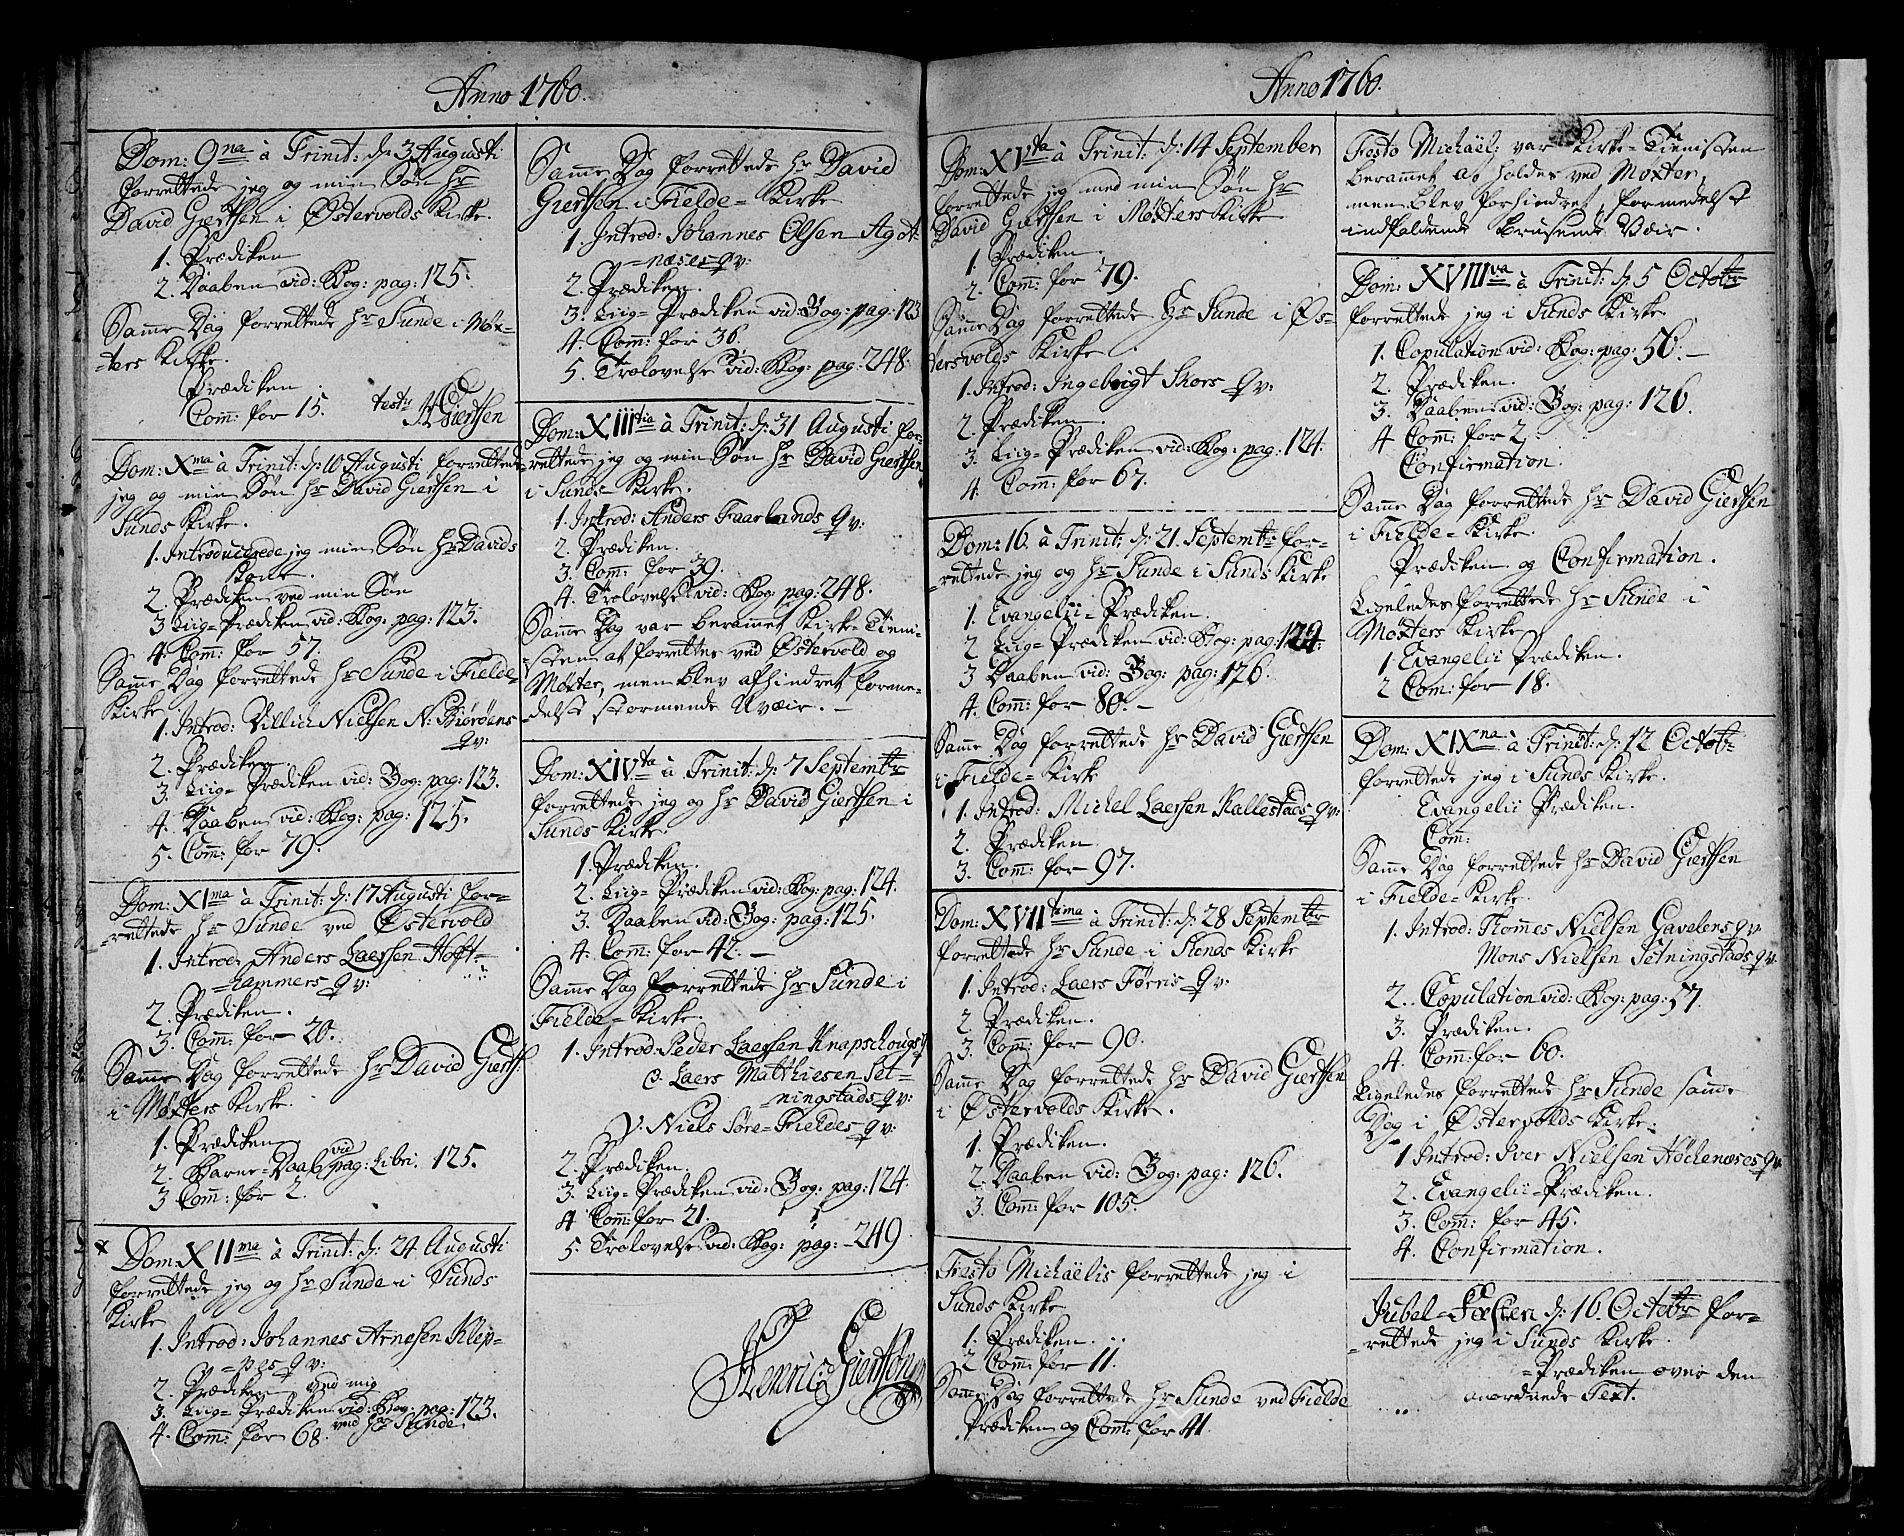 Anno 1760.
Dom: 9na à Trinit: d: 3 Augusti
forrettede jeg og min Søn hr
David Giertsen i Østervolds Kirke.
1. Prædiken
2. Daaben vid: Bog: pag: 125.
Samme Dag forrettede hr Sunde i Møx-
-ters Kirke.
Prædiken
Com̄: for 15. testr H Giertsen
Dom: Xma à Trinit: d: 10 Augusti forrettede
jeg og min Søn hr David Giertsen i
Sunds Kirke.
1. Introducerede jeg min Søn hr Davids
Kone.
2. Prædiken ved min Søn
3 Liig-Prædiken vid: Bog: pag: 123.
4. Com̄: for 57.
Samme Dag forrettede hr Sunde i Fielde-
Kirke
1. Introd: Villich Nielsen N: Biørøens
qv:
2. Prædiken.
3. Liig-Prædiken vid: Bog: pag: 123.
4. Daaben vid: Bog: pag: 125.
5. Com̄: for 79.
Dom: XIma à Trinit: d: 17 Augusti for-
-rettede hr Sunde ved Østervold
1. Introd: Anders Laersen Hoft-
-hammers qv:
2. Prædiken.
3. Com̄: for 20.
Samme Dag forrettede hr David Giertsen
i Møxters Kirke.
1. Prædiken
2. Barne-Daab vid pag: Libri. 125.
3 Com̄: for 2.
x Dom: XIIma à Trinit: d: 24 Augusti
forrettede jeg og hr Sunde i Sunds
Kirke
1. Introd: Johannes Arnesen Klep-
-pes qv:
2. Prædiken ved mig
3. Liig-Prædiken vid: Bog: pag: 123.
4. Com̄: for 68. ved hr Sunde.
Samme Dag forrettede hr David
Giertsen i Fielde-Kirke
1. Introd: Johannes Olsen Agot-
-næses qv:
2. Prædiken.
3. Liig-Prædiken vid: Bog: pag: 123
4. Com̄: for 36.
5. Trolovelse vid: Bog: pag: 248.
Dom: XIIItia à Trinit: d: 31 Augusti for-
-rettede jeg og min Søn hr David Giertsen
i Sunds Kirke.
1. Introd: Anders Faarlands qv:
2. Prædiken.
3. Com̄: for 39.
4. Trolovelse vid: Bog: pag: 248.
Samme Dag var berammet Kirke-Tieni-
-sten at forrettes ved Østervold og
Møxter, men blev afhindret forme-
-delst stormende Uvæir. -
Dom: XIVta à Trinit: d: 7 Septembr
forrettede jeg og hr David Giertsen i
Sunds Kirke.
1. Prædiken.
2. Liig-Prædiken vid: Bog: pag: 124.
3. Daaben vid: Bog: pag: 125.
4. Com: for 42. -
Samme Dag forrettede hr Sunde i
Fielde-Kirke.
1. Introd: Peder Laersen Knapschougs qv
o. Laers Matthiesen Set-
-ningstads qv:
V. Niels Søre-Fieldes qv:
2. Prædiken.
3. Liig-Prædiken vid: Bog: pag: 124.
4 Com̄: for 21.
5. Trolovelse vid: Bog: pag: 249.
Henric Giertsen
Anno 1760.
Dom: XVta à Trinit: d: 14 September
forrettede jeg med min Søn hr
David Giertsen i Møxters Kirke
1. Prædiken
2. Com̄: for 79.
Samme Dag forrettede hr Sunde i Øs-
-tersvolds Kirke.
1. Introd: Ingebrigt Skors qv:
2. Prædiken.
3. Liig-Prædiken vid: Bog: pag: 124.
4. Com̄: for 67.
Dom: 16. à Trinit: d: 21. Septembr for-
-rettede jeg og hr Sunde i Sunds Kirke
1. Evangelii-Prædiken.
2 Liig-Prædiken vid: Bog: pag: 124.
3 Daaben vid: Bog: pag: 126.
4. Com̄: for 80. -
Samme Dag forrettede hr David Giertsen
i Fielde-Kirke
1. Introd: Michel Laersen Kallestads qv:
2. Prædiken.
3. Com̄: for 97.
Dom: XVIItima à Trinit: d: 28 Septembr
forrettede hr Sunde i Steens Kirke
1. Introd: Laers Førris qv:
2. Prædiken.
3. Com̄: for 90.
Samme Dag forrettede hr David Giertsen
i Østervolds Kirke.
1. Prædiken.
2. Daaben vid: Bog: pag: 126.
3. Com̄: for 105.
Festo Michaëlis forrettede jeg i
Sunds Kirke
1. Prædiken.
2 Com̄: for 11.
Samme Dag forrettede hr Sunde ved Fielde
Prædiken og Com̄: for 41.
Festo Michaël: var Kirke-Tienisten
berammet at holdes ved Møxter,
men blev forhindret, formedelst
indfaldende brusende Væir.
Dom: XVIIIva à Trinit: d: 5 Octobr
forrettede jeg i Sunds Kirke
1. Copulation vid: Bog: pag: 56. -
2. Prædiken.
3. Daaben vid: Bog: pag: 126.
4 Com̄: for 2.
Confirmation.
Samme Dag forrettede hr David Giertsen
i Fielde-Kirke.
Prædiken og Confirmation.
Ligeledes forrettede hr Sunde i
Møxters Kirke
1 Evangelii Prædiken.
2 Com: for 18.
Dom: XIXna à Trinit: d: 12 Octobr
forrettede jeg i Sunds Kirke.
Evangelii Prædiken.
Com̄:
Samme Dag forrettede hr David Giertsen
i Fielde-Kirke.
1. Introd: Thomes Nielsen Gavelens qv:
Mons Nielsen Setningstads qv:
2. Copulation vid: Bog: pag: 57.
3. Prædiken.
4. Com̄: for 60.
Ligeledes forrettede hr Sunde samme
Dag i Østervolds Kirke.
1 Introd: Iver Nielsen Høchenæses qv:
2. Evangelii-Prædiken.
3. Com̄: for 45.
4. Confirmation.
Jubel-Festen d: 16. Octobr for-
-rettede jeg i Sunds Kirke.
-Prædiken over den
anordnede Text.